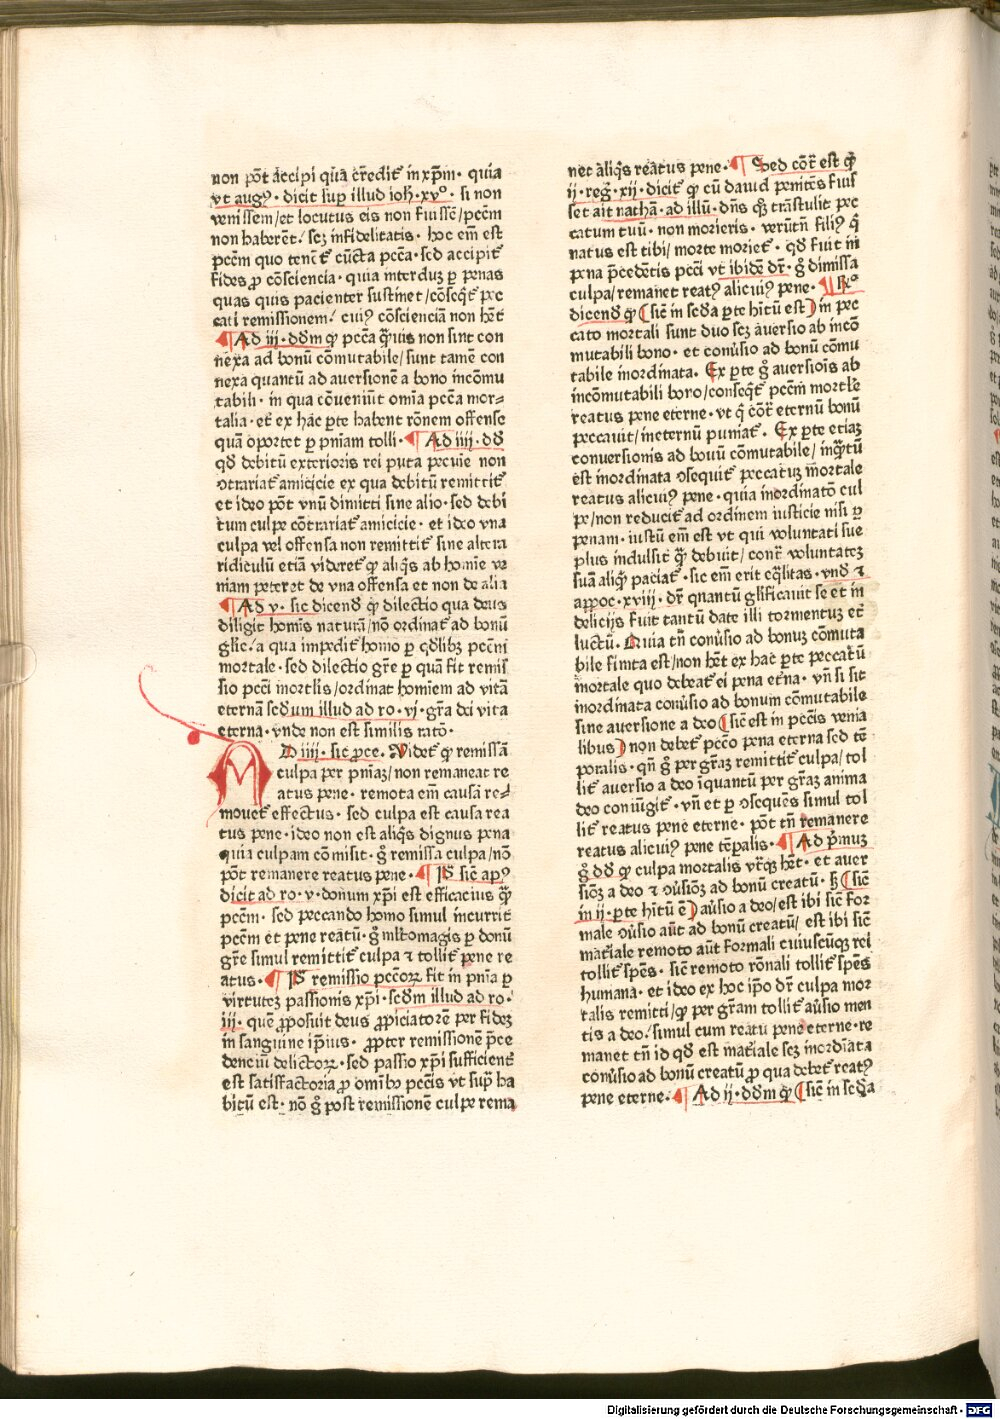 non põt accipi qua credit̃ in xp̃m · quia
vt augꝰ · dicit sup̲ illud ioh̃ · xvº · si non
venissem / et locutus eis non fuissẽ / pcc̃m
non haberẽt · sez̧ infidelitatis · hoc em̃ est
pcc̃m quo tenẽt̃ cũcta pcc̃a · sed accipit̃
fides ꝓ cõsciencia · quia interduz ꝑ penas
quas quis pacienter sustinet / cõseqt̃ pec
cati remissionem · cuiꝰ cõscienciã non hẽt
¶ Ad iij · dd̃m ꝙ pcc̃a q̃uis non sint con
nexa ad bonũ cõmutabile / sunt tamẽ con
nexa quantũ ad auersionẽ a bono incõmu
tabili · in qua cõueniũt om̃ia pcc̃a mor⸗
talia · et ex hac ꝑte habent rõnem offense
quã oportet ꝑ pñiam tolli · ¶ Ad iiij · dd̃
qđ debitũ exterioris rei puta pecuie non
ↄtrariat̃ amicicie ex qua debitũ remittit̃
et ideo põt vnũ dimitti sine alio · sed debi
tum culpe cõtrariat̃ amicicie · et ideo vna
culpa vel offensa non remittit̃ sine altera
ridiculũ etiã videret̃ ꝙ aliq̃s ab homie ve
niam peteret de vna offensa et non de alia
¶ Ad v · sic dicend̃ ꝙ dilectio qua deus
diligit homis̃ naturã / nõ ordinat̃ ad bonũ
glie · a qua impedit̃ homo ꝑ qđlibz pcc̃m
mortale · sed dilectio gr̃e ꝑ quã fit remis
sio pcc̃i mortlis / ordinat homiem ad vitã
eternã scđum illud ad ro · vj · gr̃a dei vita
eterna · vnde non est similis ratõ ·
AD iiij · sic ꝓce · Videt̃ ꝙ remissã
culpa per pñiaz / non remaneat re
atus pene · remota em̃ causa re⸗
mouet̃ effectus · sed culpa est causa rea
tus pene · ideo non est aliq̃s dignus pena
quia culpam cõmisit · g̊ remissa culpa / nõ
põt remanere reatus pene · ¶ P̃ sic̃ apꝰ
dicit ad ro · v · donum xp̃i est efficacius q̃
pcc̃m · sed peccando homo simul incurrit
pcc̃m et pene reatũ · g̊ ml̃tomagis ꝑ donũ
gr̃e simul remittit̃ culpa ⁊ tollit̃ pene re
atus · ¶ P̃ remissio pcc̃oꝝ fit in pñia ꝑ
virtutez passionis xp̃i · scđm illud ad ro ·
iij · quẽ ꝓposuit deus ꝓpiciatorẽ per fidez
in sanguine ip̃ius · ꝓpter remissionẽ p̃ce
denciũ delictoꝝ · sed passio xp̃i sufficient̃
est satisfactoria ꝓ om̃ibꝫ pcc̃is vt sup̃ ha
bitũ est · nõ g̊ post remissionẽ culpe rema
net aliq̃s reatus pene · ¶ Sed cõt̃ est ꝙ
ij · reg̃ · xij · dicit̃ ꝙ cũ dauid penitẽs fuis
set ait nathã · ad illũ · dñs qꝫ trãstulit pec
catum tuũ · non morieris · verũtñ filiꝰ q̃
natus est tibi / morte moriet̃ · qđ fuit in
pena p̃cedẽtis pcc̃i vt ibidẽ dr̃ · g̊ dimissa
culpa / remanet reatꝰ alicuiꝰ pene · ¶ R̃º
dicend̃ ꝙ ( sic̃ in scđa ꝑte hĩtũ est ) in pec
cato mortali sunt duo sez̧ auersio ab incõ
mutabili bono · et conu̾sio ad bonũ cõmu
tabile inordinata · Ex ꝑte g̊ auersiois̃ ab
incõmutabili bono / conseqt̃ pcc̃m mortl̃e
reatus pene eterne · vt q̃ cõt̃ eternũ bonũ
peccauit / ineternũ puniat̃ · Ex ꝑte etiaz
conuersionis ad bouũ cõmutabile / inq̃tũ
est inordinata ↄsequit̃ peccatuz mortale
reatus alicuiꝰ pene · quia inordinatõ cul
pe / non reducit̃ ad ordinem iusticie nisi ꝑ
penam · iustũ em̃ est vt qui voluntati sue
plus indulsit q̃ debuit / cont̃ voluntatez
suã aliq̃ paciat̃ · sic em̃ erit eq̃litas · vnđ ⁊
appoc · xviij · dr̃ qnantũ glificauit se et in
delicijs fuit tantũ date illi tormentuz et
luctũ · Quia tñ conu̾sio ad bonuz cõmuta
bile finita est / non hẽt ex hac ꝑte peccatũ
mortale quo debeat̃ ei pena et̃na · vñ si sit
inordinata conu̾sio ad bonum cõmutabile
sine auersione a deo ( sic̃ est in pcc̃is venia
libus ) non debet̃ pcc̃o pena eterna sed tẽ
poralis · qñ g̊ per grãz remittit̃ culpa / tol
lit̃ auersio a deo iquantũ per grãz anima
deo coniũgit̃ · vñ et ꝑ ↄsequẽs simul tol
lit̃ reatus pene eterne · põt tñ remanere
reatus alicuiꝰ pene tẽꝑalis · ¶ Ad p̃muz
g̊ dđ ꝙ culpa mortalis vt̃qꝫ hẽt · et auer
siõz a deo ⁊ ↄu̾siõz ad bonũ creatũ · sꝫ ( sic̃
in ij · ꝑte hĩtũ ẽ ) au̾sio a deo / est ibi sic̃ for
male ↄu̾sio aũt ad bonũ creatũ / est ibi sic̃
mat̃iale remoto aũt formali cuiuscũqꝫ rei
tollit̃ spẽs · sic̃ remoto rõnali tollit̃ spẽs
humana · et ideo ex hoc ip̃o dr̃ culpa mor
talis remitti / ꝙ per grãm tollit̃ au̾sio men
tis a deo / simul cum reatu pene eterne · re
manet tñ id qđ est mat̃iale sez̧ inordĩata
conu̾sio ad bonũ creatũ ꝓ qua debet̃ reatꝰ
pene eterne · ¶ Ad ij · dd̃m ꝙ ( sic̃ in scđa
Digitalisierung gefördert durch die Deutsche Forschungsgemeinschaft - DFG